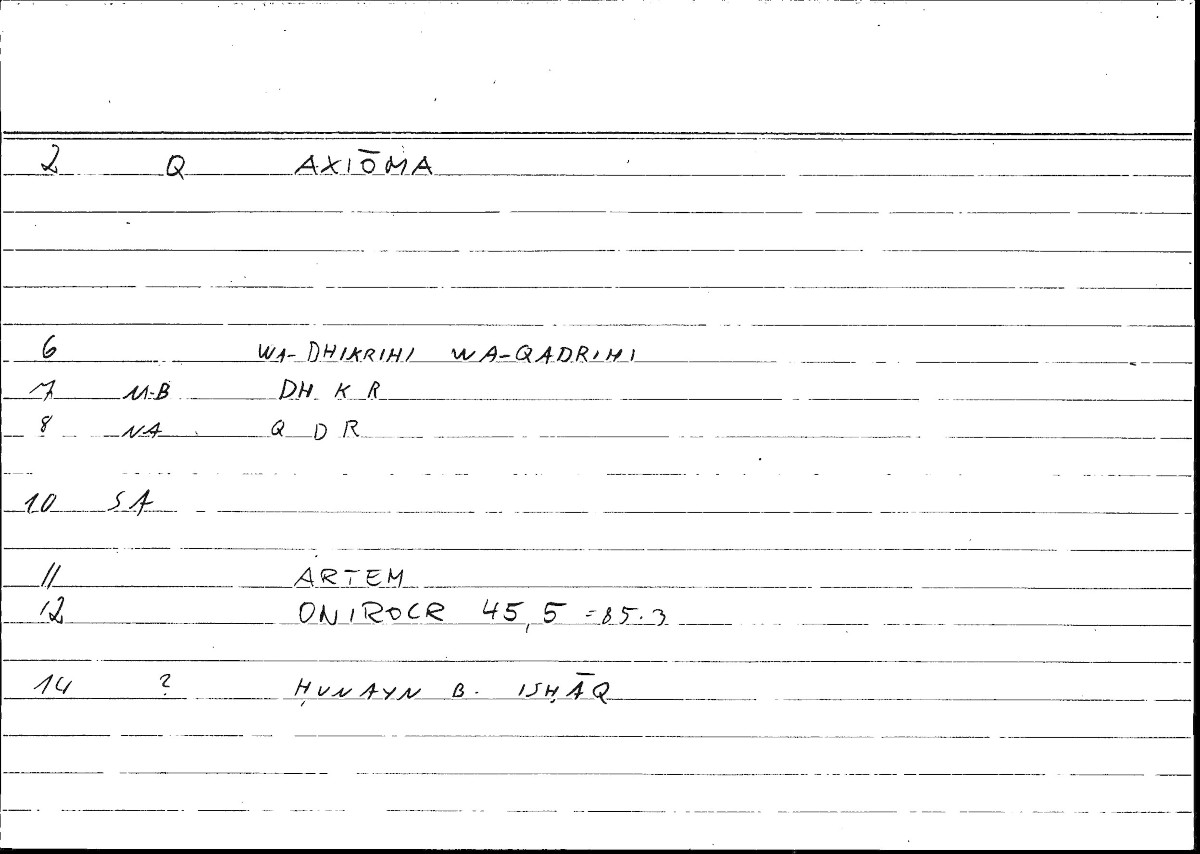 2 Q AXIŌMA
6 WA-DHIKRIHI WA-QADRIHI
7 M-B DH K R
8 NA Q D R
10 SA
11 ARTEM
12 ONIROCR 45,5 = 85.3
14 ? ḤUNAYN B. ISḤĀQ